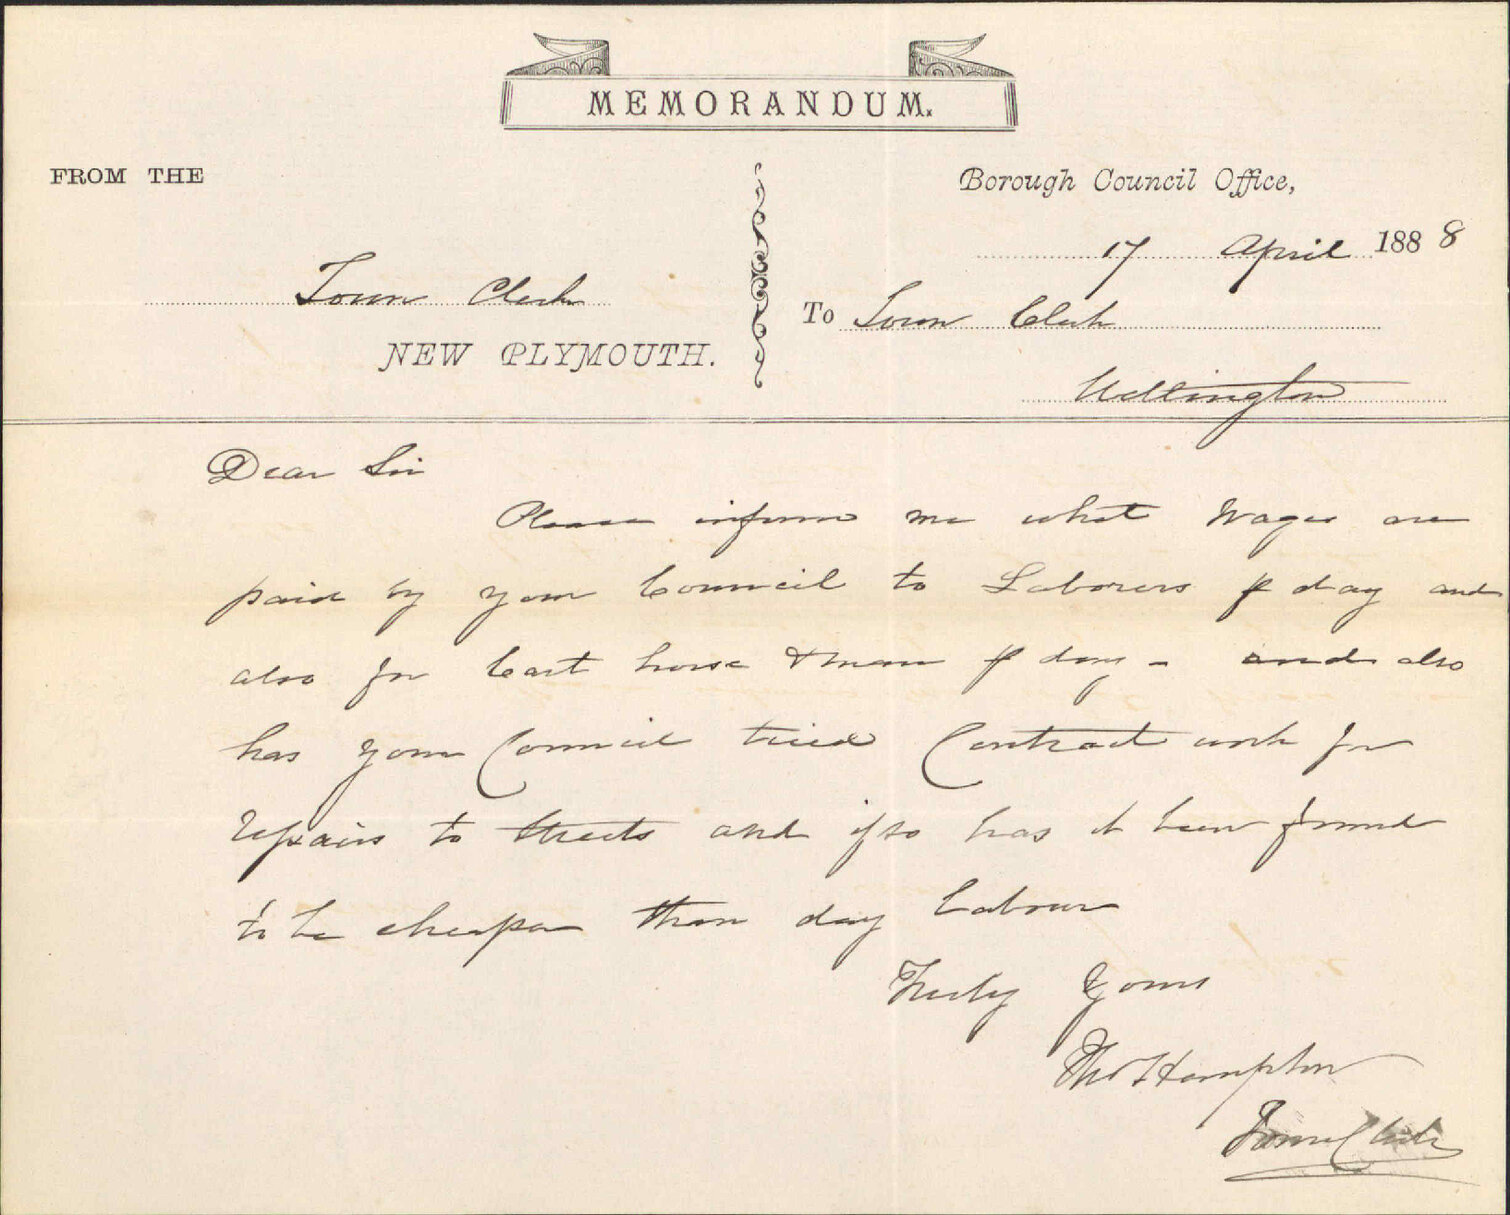 MEMORANDUM.
FROM THE
Town Clerk
NEW PLYMOUTH.
Borough Council Office,
17 April 1888
To Town Clerk
Wellington
Dear Sir
Please inform me what Wages are
paid by your Council to Laborers ⅌ day and
also for Cart horse & man ⅌ day - and also
has your Council tried Contract work for
repairs to streets and if so has it been found
to be cheaper than day Labour
Truly Yours
Thos Hampton
Town Clerk